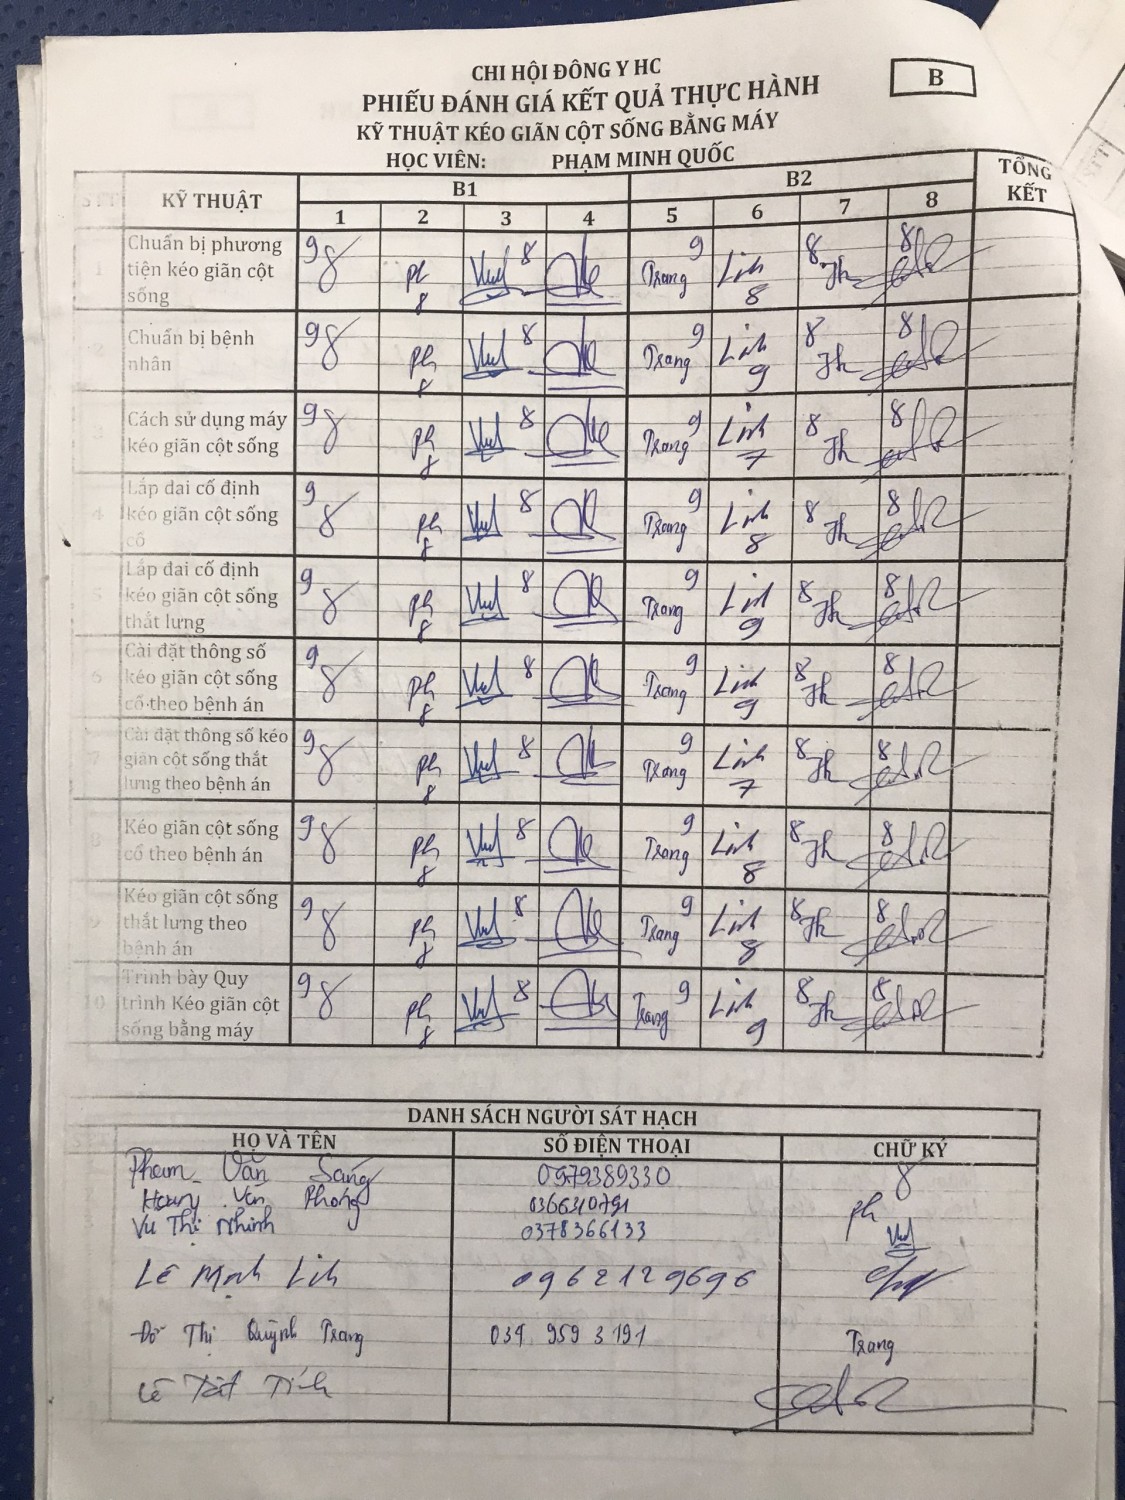 CHI HỘI ĐÔNG Y HC
B
PHIẾU ĐÁNH GIÁ KẾT QUẢ THỰC HÀNH
KỸ THUẬT KÉO GIÃN CỘT SỐNG BẰNG MÁY
HỌC VIÊN: PHẠM MINH QUỐC
STT KỸ THUẬT B1 B2 TỔNG KẾT
1 2 3 4 5 6 7 8
1 Chuẩn bị phương
tiện kéo giãn cột
sống
9 ph 8 8 Trang 9 Linh 8 8 8
2 Chuẩn bị bệnh
nhân
9 ph 8 8 Trang 9 Linh 9 8 8
3 Cách sử dụng máy
kéo giãn cột sống
9 ph 8 8 Trang 9 Linh 7 8 8
4 Lắp đai cố định
kéo giãn cột sống
cổ
9 ph 8 8 Trang 9 Linh 8 8 8
5 Lắp đai cố định
kéo giãn cột sống
thắt lưng
9 ph 8 8 Trang 9 Linh 9 8 8
6 Cài đặt thông số
kéo giãn cột sống
cổ theo bệnh án
9 ph 8 8 Trang 9 Linh 9 8 8
7 Cài đặt thông số kéo
giãn cột sống thắt
lưng theo bệnh án
9 ph 8 8 Trang 9 Linh 7 8 8
8 Kéo giãn cột sống
cổ theo bệnh án
9 ph 8 8 Trang 9 Linh 8 8 8
9 Kéo giãn cột sống
thắt lưng theo
bệnh án
9 ph 8 8 Trang 9 Linh 8 8 8
10 Trình bày Quy
trình Kéo giãn cột
sống bằng máy
9 ph 8 8 Trang 9 Linh 9 8 8
DANH SÁCH NGƯỜI SÁT HẠCH
STT HỌ VÀ TÊN SỐ ĐIỆN THOẠI CHỮ KÝ
Phạm Văn Sáng 0979389330
Hoàng Văn Phong ph
Vũ Thị Nhinh 0378366133
Lê Mạnh Linh 0962129696
Đỗ Thị Quỳnh Trang 039 959 3 191 Trang
Lê Tất Tính